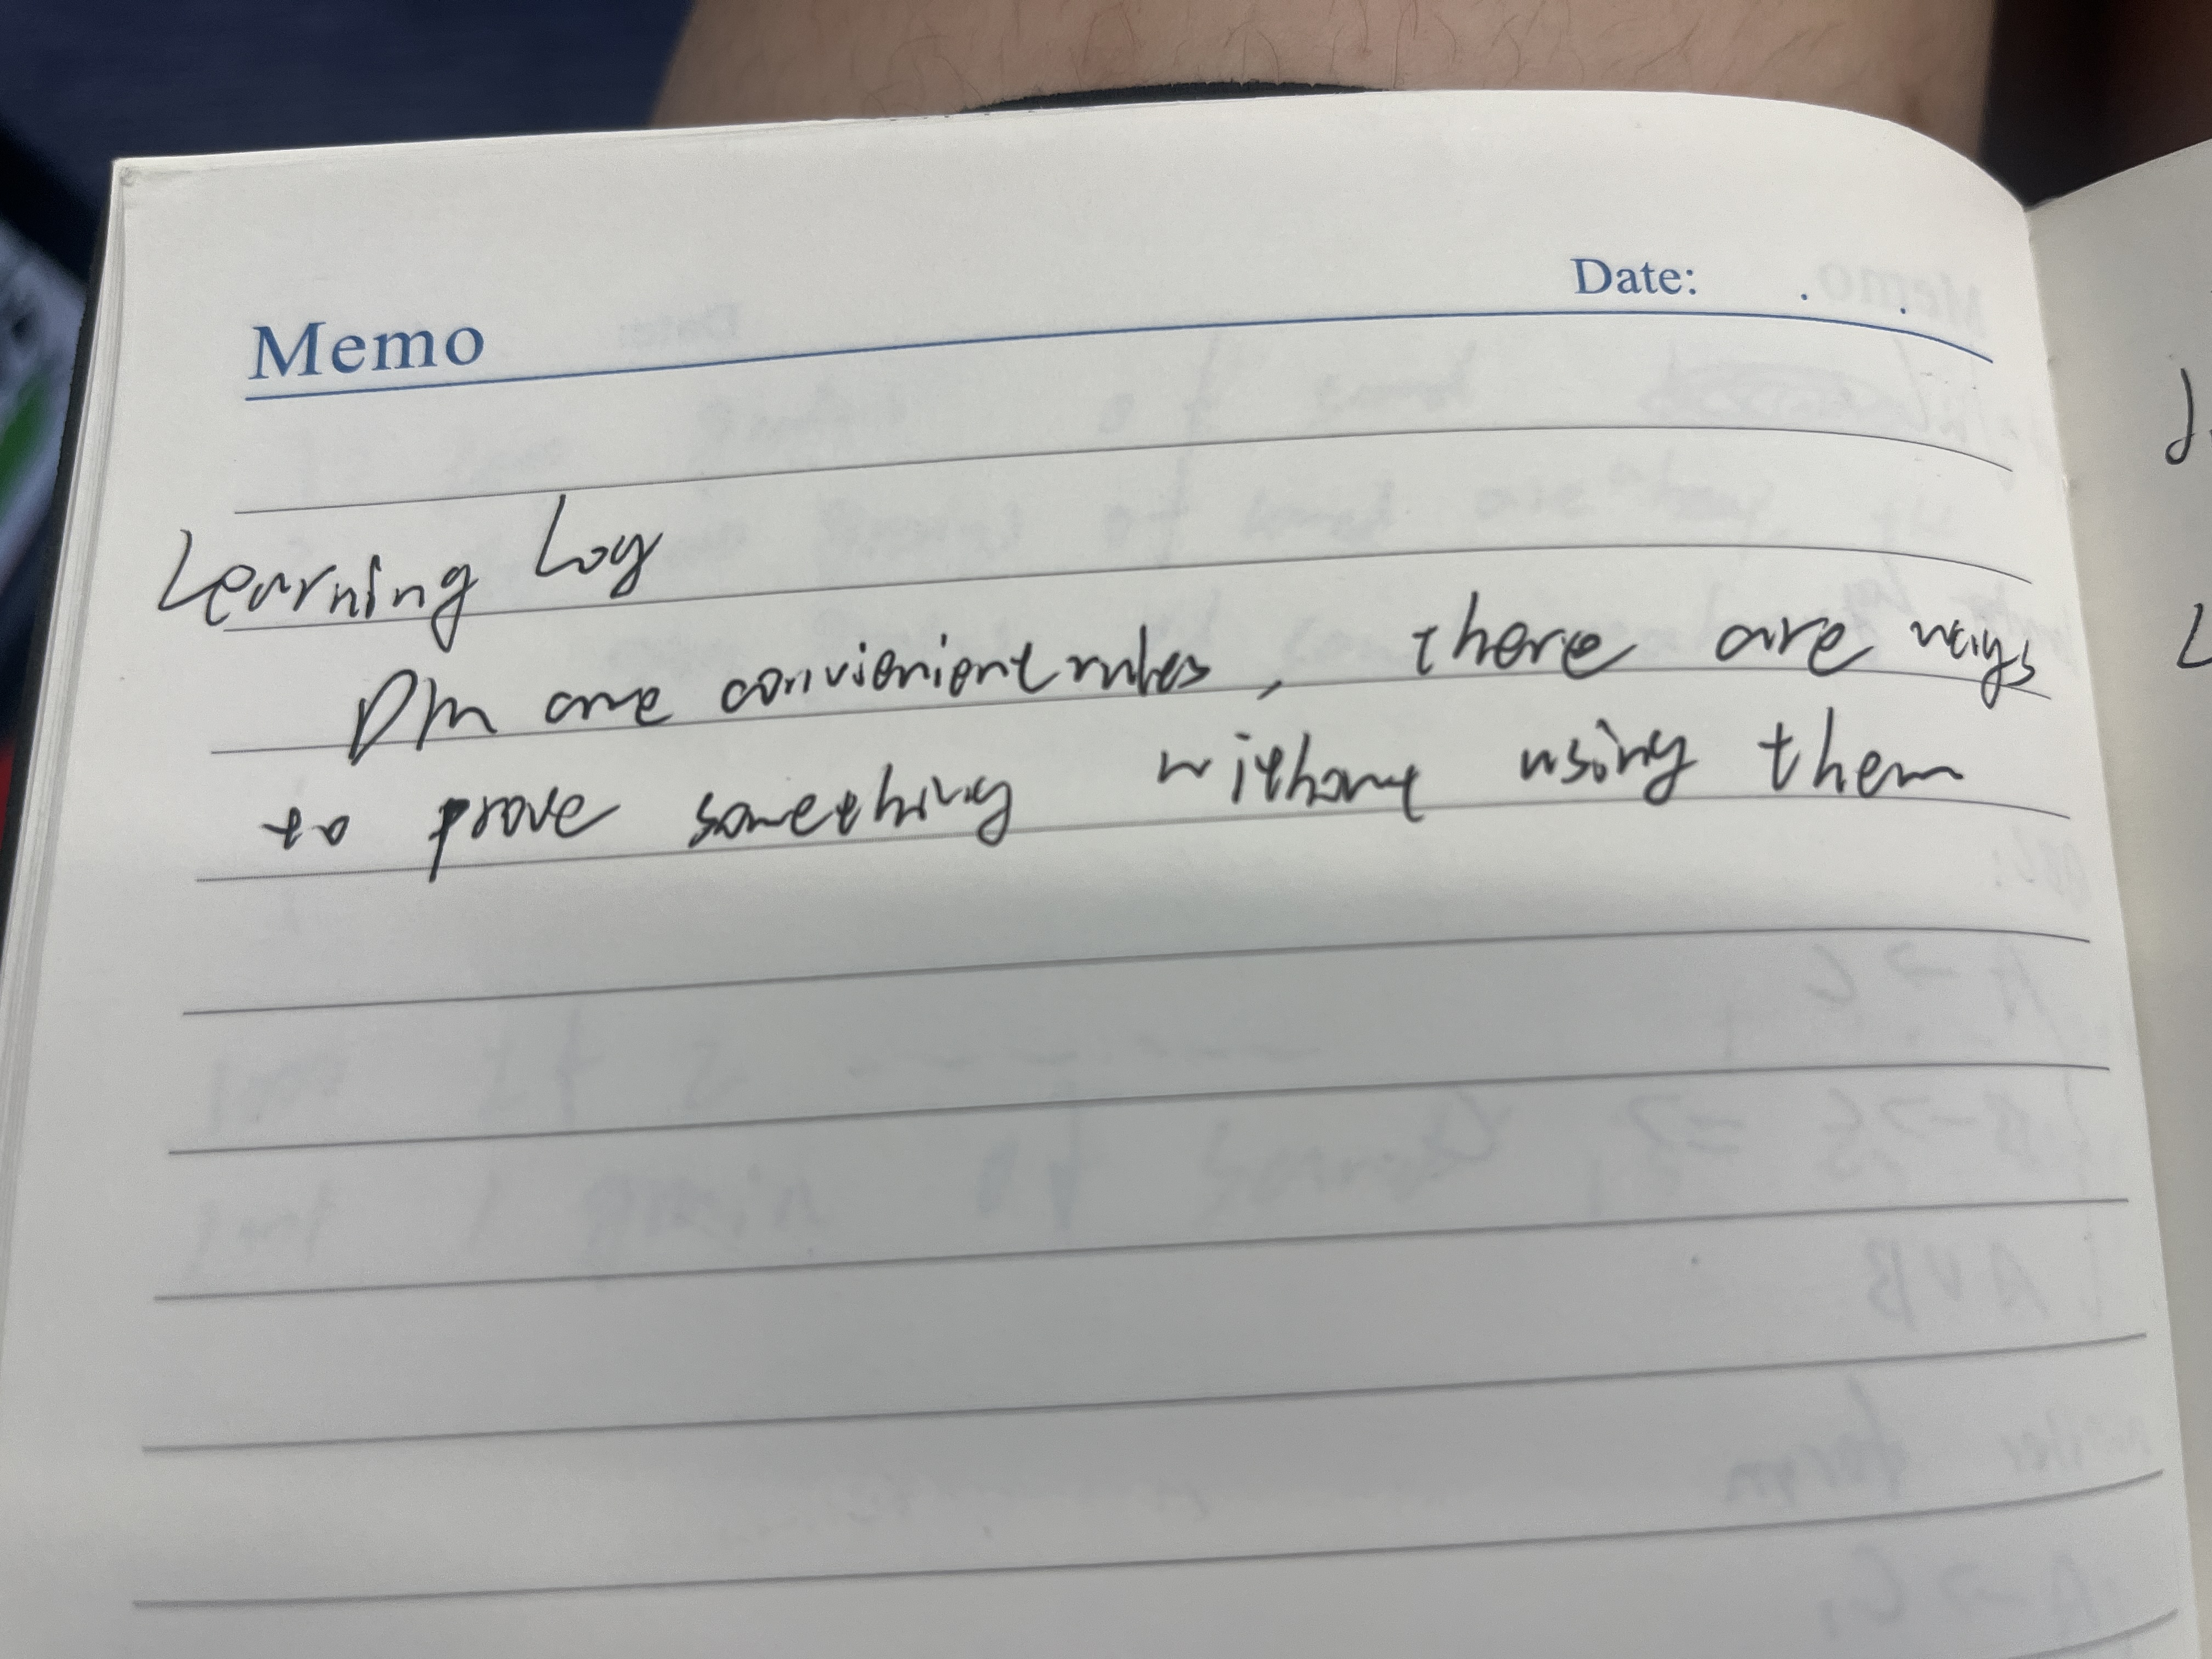 Memo Date: . .
Learning Log
are convienient rules, there are ways
to prove something without using them